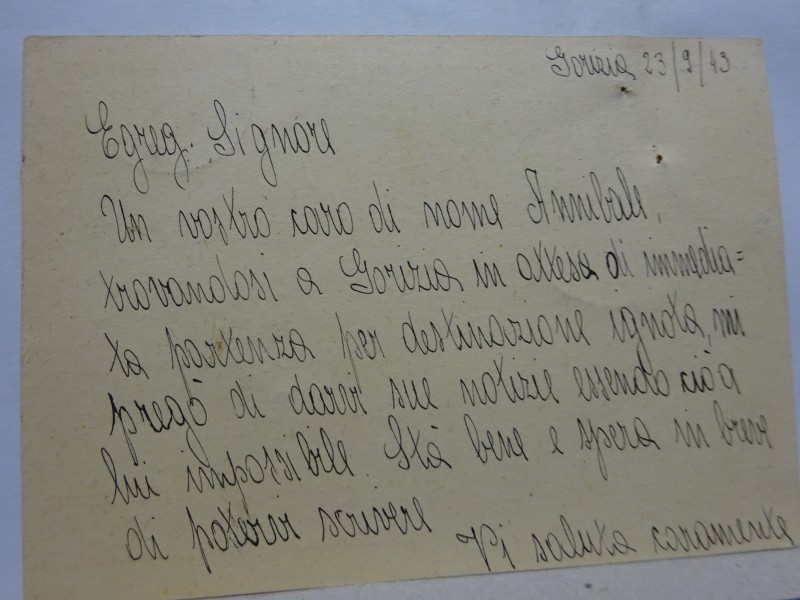 Gorizia 23/9/43
Egreg. Signore
Un vostro caro di nome Annibale,
trovandosi a Gorizia in attesa di immedia=
ta partenza per destinazione ignota, mi
pregò di darvi sue notizie essendo ciò a
lui impossibile. Stà bene e spera in breve
di potervi scrivere
Vi saluta caramente